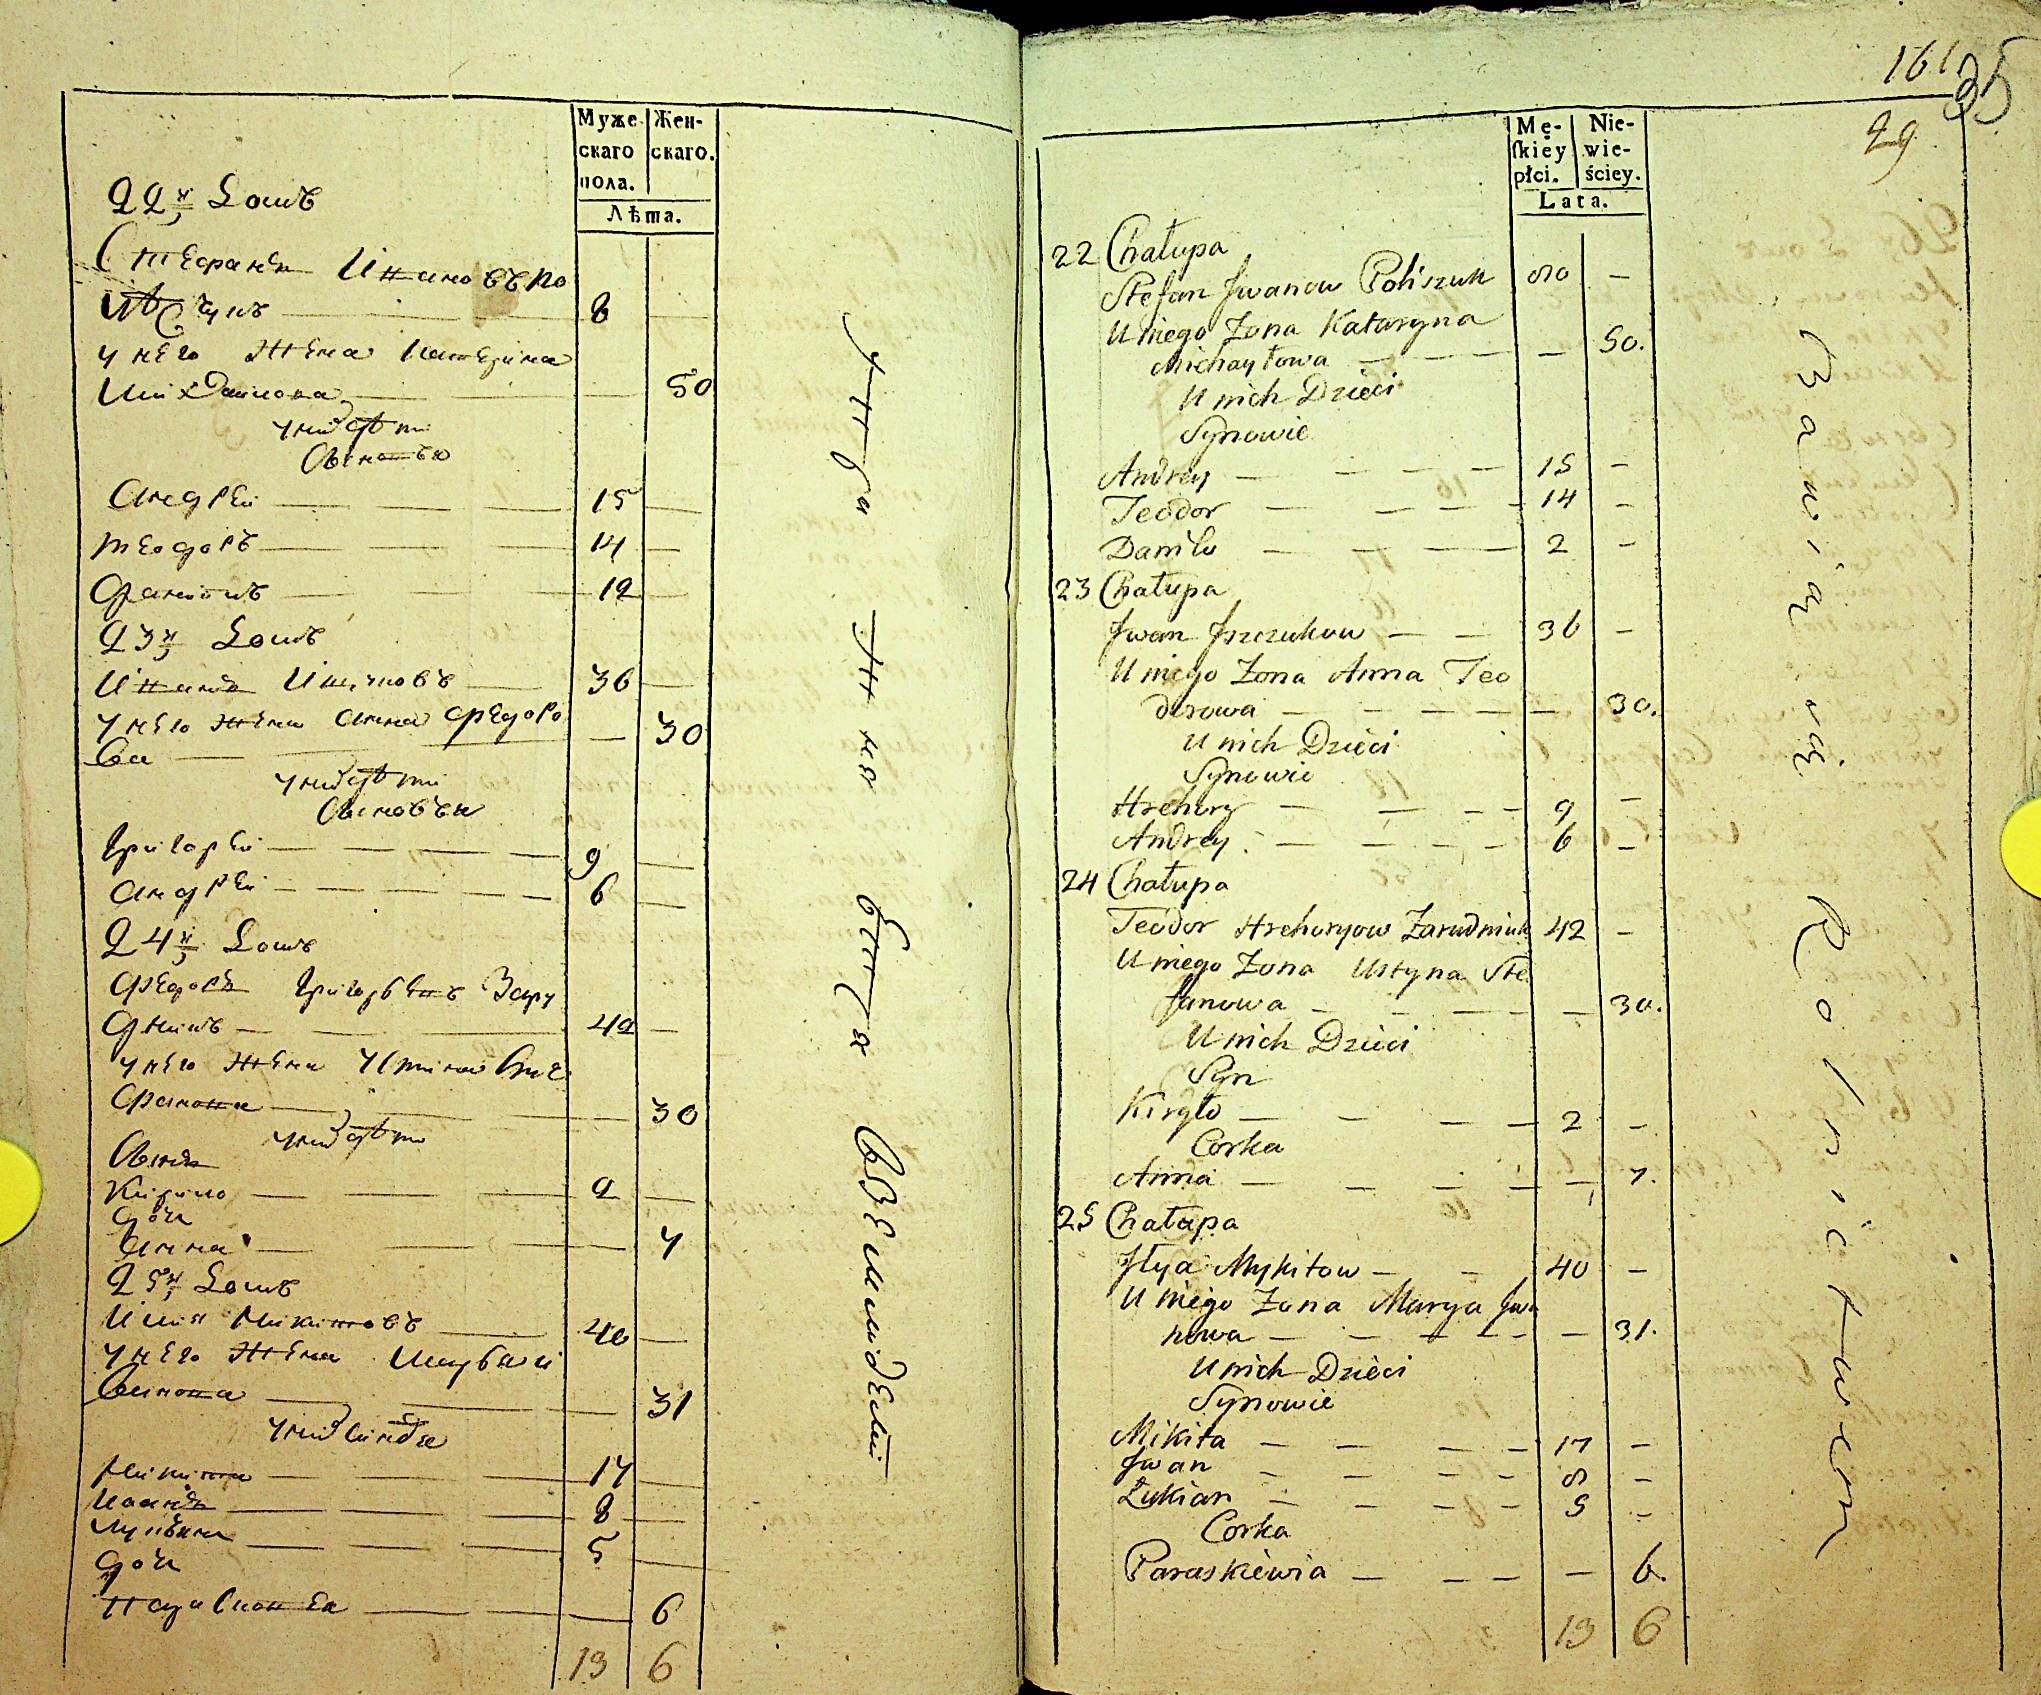 Муже
скаго
пола.
Жен-
скаго.
Лѣта.
22й
Стефанъ Ивановъ По
лѣщукъ 8
у него Жена Катерина
Михайлова 50
у ни дѣти
Сыновья
Андрей 15
теодоръ 14
23й
Иванъ Ищуковъ 36
у него жена анна федоро
ва 30
у ни дѣти
Сыновья
Григорей 9
андрей 6
24й
федоръ Григорьевъ Зару
дникъ 42
у него жена Устина Сте
фанова 30
у ни дѣти
Сынъ
Кирило 2
дочь
анна 7
25й
Илия Микитовъ 40
у него Жена
31
Микита 17
Иванъ 8
Лукианъ 5
дочь
Парасковея 6
13 6
161
35
29
Mę-
ſkiey
płci.
Nie-
wie-
ściey.
Lata.
22 Chałupa
Stefan Jwanow Poliszuk 80 —
U niego Żona Kataryna
Michayłowa — 50.
U nich Dzieci
Synowie
Andrey 15 —
Teodor 14 —
Daniło 2 —
23 Chałupa
Jwan Jszczukow 36 —
U niego Żona Anna Teo
dorowa — 30.
U nich Dzieci
Synowie
Hrehory 9 —
Andrey 6 —
24 Chałupa
Teodor Hrehoryow Zarudniuk 42 —
U niego Żona Ustyna Ste
fanowa — 30.
U nich Dzieci
Syn
Kiryło 2 —
Corka
Anna — 7.
25 Chałupa
Jłya Mykitow 40 —
U niego Żona Marya Jwa
nowa — 31.
U nich Dzieci
Synowie
Mikita 17 —
Jwan 8 —
Łukian 5 —
Corka
Paraskiewia — 6.
13 6
Bawią się Rolnictwem